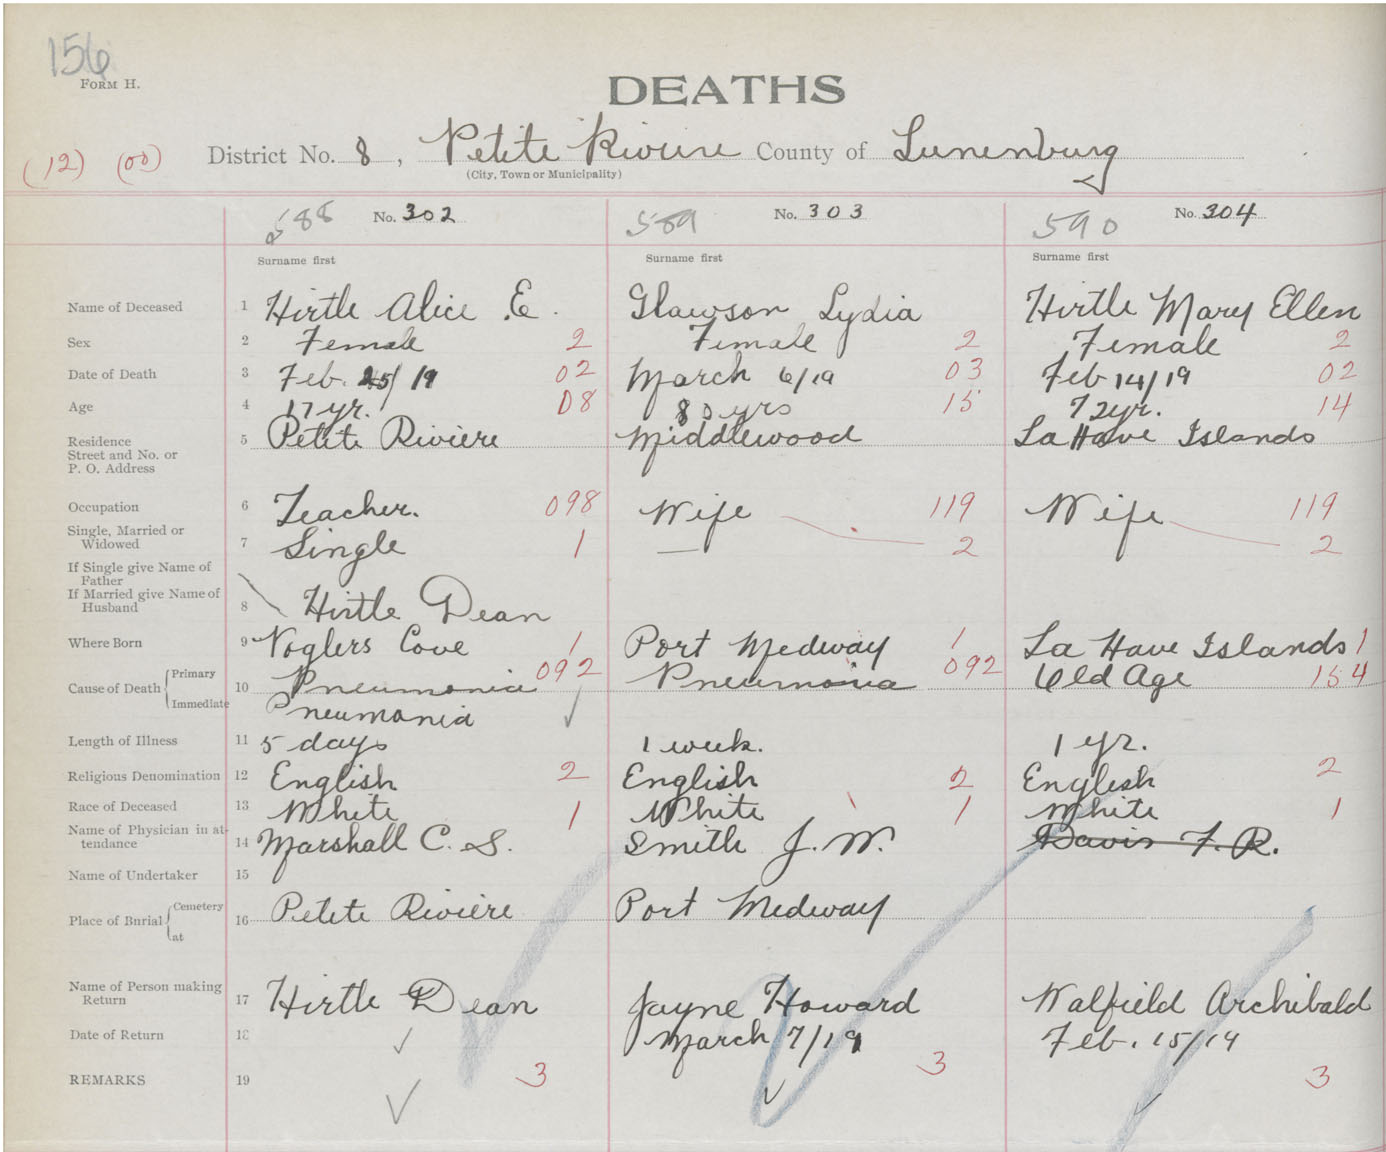 156
FORM H.
DEATHS
(12) (00) District No. 8, Petite Riviere County of Lunenburg
(City, Town or Municipality)
588 No. 302 589 No. 303 590 No. 304
Surname first Surname first Surname first
Name of Deceased 1 Hirtle Alice E. Glawson Lydia Hirtle Mary Ellen
Sex 2 Female 2 Female 2 Female 2
Date of Death 3 Feb. 25/19 02 March 6/19 03 Feb 14/19 02
Age 4 17 yr. 08 80 yrs 15 72 yr. 14
Residence
Street and No. or
P. O. Address 5 Petite Riviere Middlewood La Have Islands
Occupation 6 Teacher. 098 Wife 119 Wife 119
Single, Married or
Widowed 7 Single 1 — 2 2
If Single give Name of
Father
If Married give Name of
Husband 8 Hirtle Dean
Where Born 9 Voglers Cove 1 Port Medway 1 La Have Islands 1
Cause of Death Primary 10 Pneumonia 092 Pneumonia 092 Old Age 154
Immediate Pneumonia
Length of Illness 11 5 days 1 week. 1 yr.
Religious Denomination 12 English 2 English 2 English 2
Race of Deceased 13 White 1 White 1 White 1
Name of Physician in at-
tendance 14 Marshall C. S. Smith J. W. Davis F. R.
Name of Undertaker 15
Place of Burial Cemetery
at 16 Petite Riviere Port Medway
Name of Person making
Return 17 Hirtle Dean Jayne Howard Walfield Archibald
Date of Return 18 March 7/19 Feb. 15/19
REMARKS 19 3 3 3